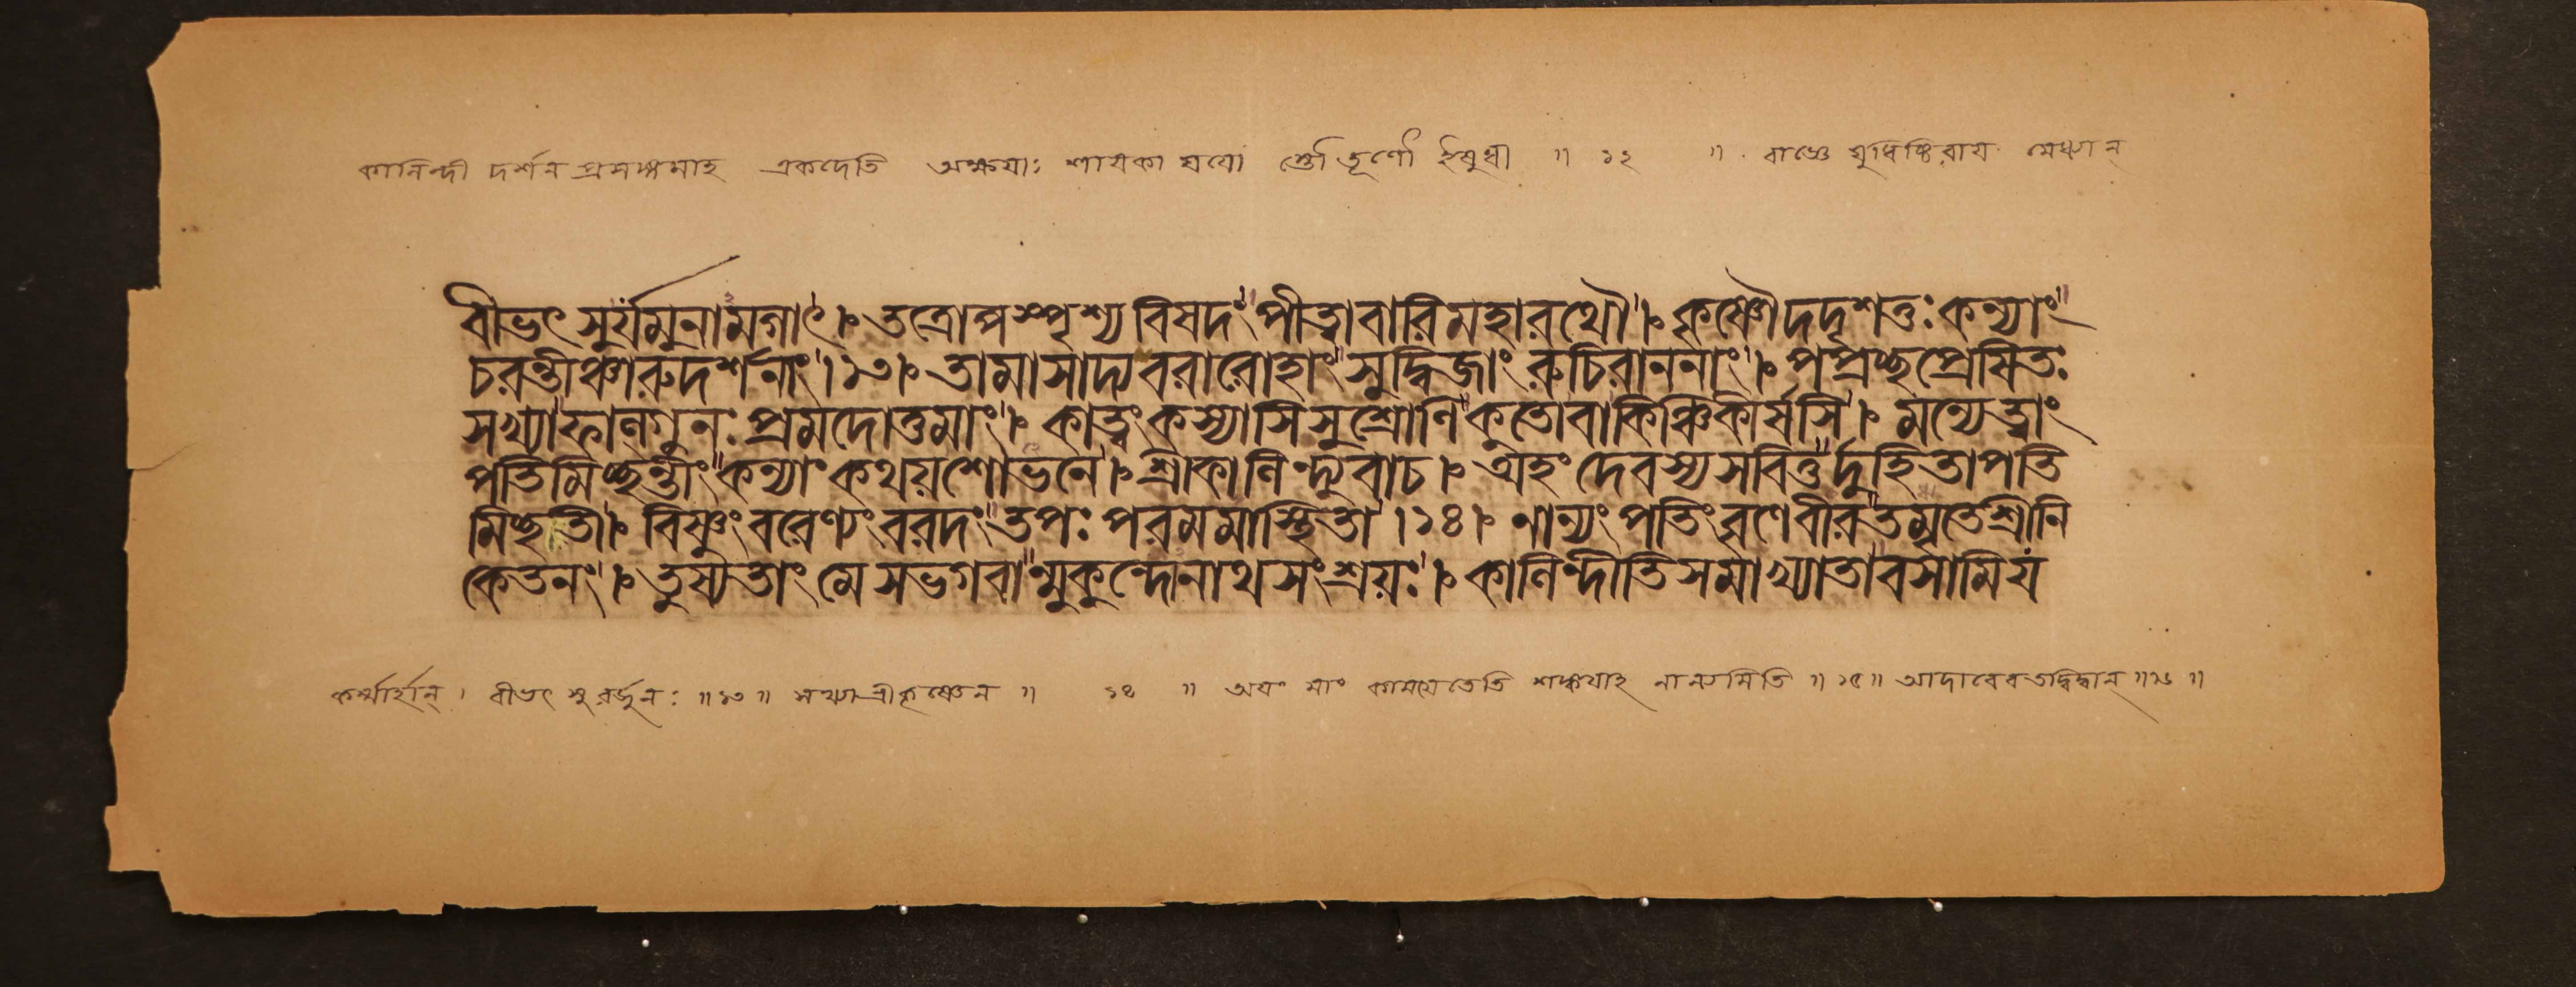 কালিন্দী দর্শন প্রসঙ্গমাহ একদেতি অক্ষয়াঃ শায়কা যয়ো স্তৌ তূণৌ ইষুধী ॥ ১২ ॥ রাজ্ঞে যুধিষ্ঠিরায় মেধ্যান্
বীভৎসুর্যমুনামগাৎ। তত্রোপস্পৃশ্য বিষদং পীত্বাবারিমহারথৌ। কৃষ্ণৌদদৃশতুঃকন্যাং
চরন্তীঞ্চারুদর্শনাং।১৩। তামাসাদ্যবরারোহাং সুদ্বিজাং রুচিরাননাং। পপ্রচ্ছপ্রেষিতঃ
সখ্যাফাল্গুনঃ প্রমদোত্তমাং। কাত্বংকস্যাসিসুশ্রোণিকুতোবাকিঞ্চিকীর্ষসি। মন্যেত্বাং
পতিমিচ্ছন্তীং কন্যাং কথয়শোভনে। শ্রীকালিন্দ্যুবাচ। অহং দেবস্যসবিতুর্দুহিতাপতি
মিচ্ছতী। বিষ্ণুংবরেণ্যংবরদং তপঃ পরমমাস্থিতা।১৪। নান্যং পতিংবৃণেবীরতমৃতেশ্রীনি
কেতনং। তুষ্যতাং মে সভগবান্মুকুন্দোনাথসংশ্রয়ঃ। কালিন্দীতিসমাখ্যাতাবসামিয
কর্ম্মার্হান্। বীভৎসুরর্জুনঃ ॥১৩॥ সখ্যাশ্রীকৃষ্ণেন ॥ ১৪ ॥ অয়ং মাং কাময়েতেতি শঙ্কয়াহ নান্যমিতি ॥১৫॥ আদাবেবতদ্বিদ্বান্॥১৬॥